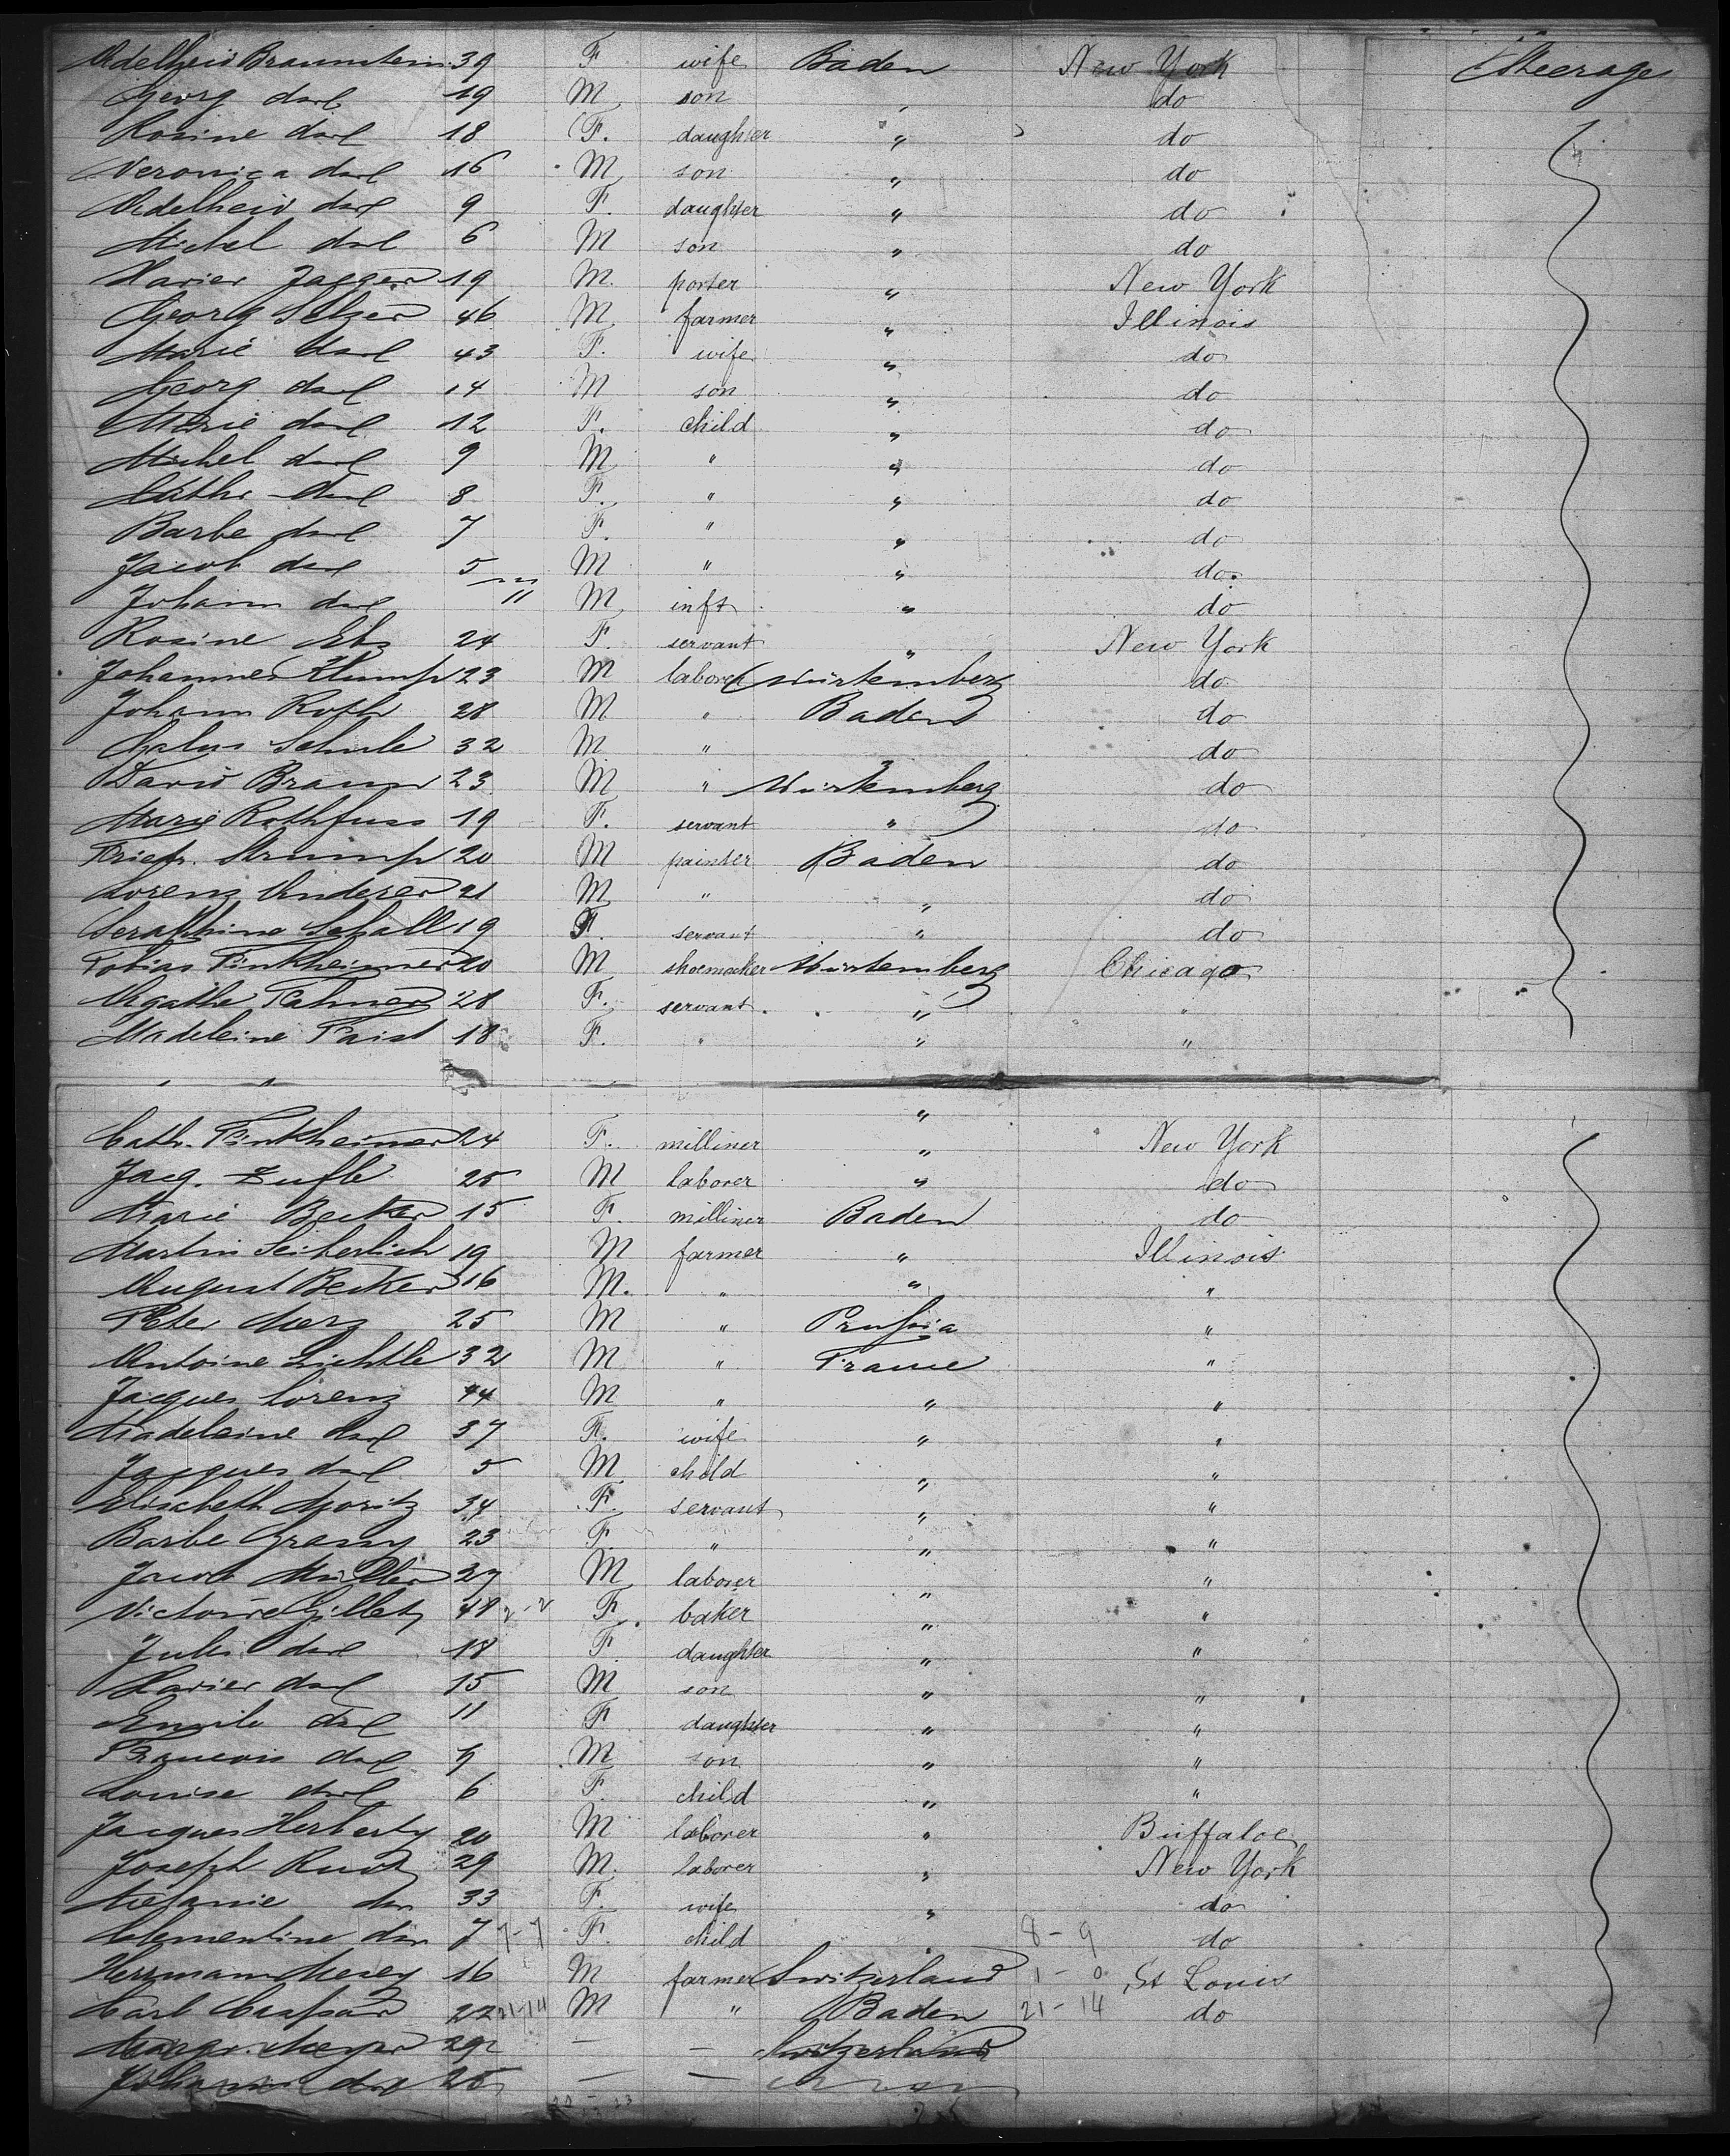 Adelheid Braunstein 39 F wife Baden New York Steerage
Georg do 19 M son " do
Rosine do 18 F. daughter " do
Veronica do 16 M son " do
Adelheid do 9 F. daughter " do
Michel do 6 M son " do
Xavier Jaeger 19 M. porter " New York
Georg Selzer 46 M farmer " Illinois
Marie do 43 F. wife " do
Georg do 14 M son " do
Marie do 12 F. child " do
Michel do 9 M " " do
Cathr do 8 F. " " do
Barbe do 7 F. " " do
Jacob do 5 M " " do
Johann do 11 M inft " do
Rosine 24 F. servant " New York
Johannes Klumpp 23 M laborer Würtemberg do
Johann Roth 28 M " Baden do
Schule 32 M " do
David Braun 23 M " Würtemberg do
Marie Rothfuss 19 F. servant " do
Friedr. Strumpf 20 M painter Baden do
Lorenz Anderer 21 M " " do
Seraphine Schall 19 F. servant " do
Tobias Finkheimer 20 M shoemaker Würtemberg Chicago
Agathe 28 F. servant " "
Madeleine Faist 18 F. " " "
"
Cath. Finkheimer 24 F. milliner " New York
Jacq. Zufle 25 M laborer " do
Marie Becker 15 F. milliner Baden do
Martin Seiterlich 19 M farmer " Illinois
August Becker 16 M. " " "
Peter Merz 25 M " Prussia "
Antoine Lichtle 32 M " France "
Jacques Lorenz 44 M " " "
Madeleine do 37 F. wife " "
Jacques do 5 M child " "
Elisabeth Moritz 34 F. servant " "
Barbe 23 F. " " "
Jacob Müller 27 M laborer " "
Victoire Gillet 48 F. baker " "
Julie do 18 F daughter " "
Xavier do 15 M son " "
Emilie do 11 F daughter " "
Francois do 9 M son " "
Louise do 6 F. child " "
Jacques Herberty 20 M laborer " Buffaloe
Joseph 29 M. laborer " New York
Melanie do 33 F. wife " do
Clementine do 7 7-7 F. child " 8-9 do
Herrmann 16 M farmer Switzerland 1-0 St Louis
Carl Caspar 22 21-14 M " Baden 21-14 do
Meyer 29 — — Switzerland
do 25 — —